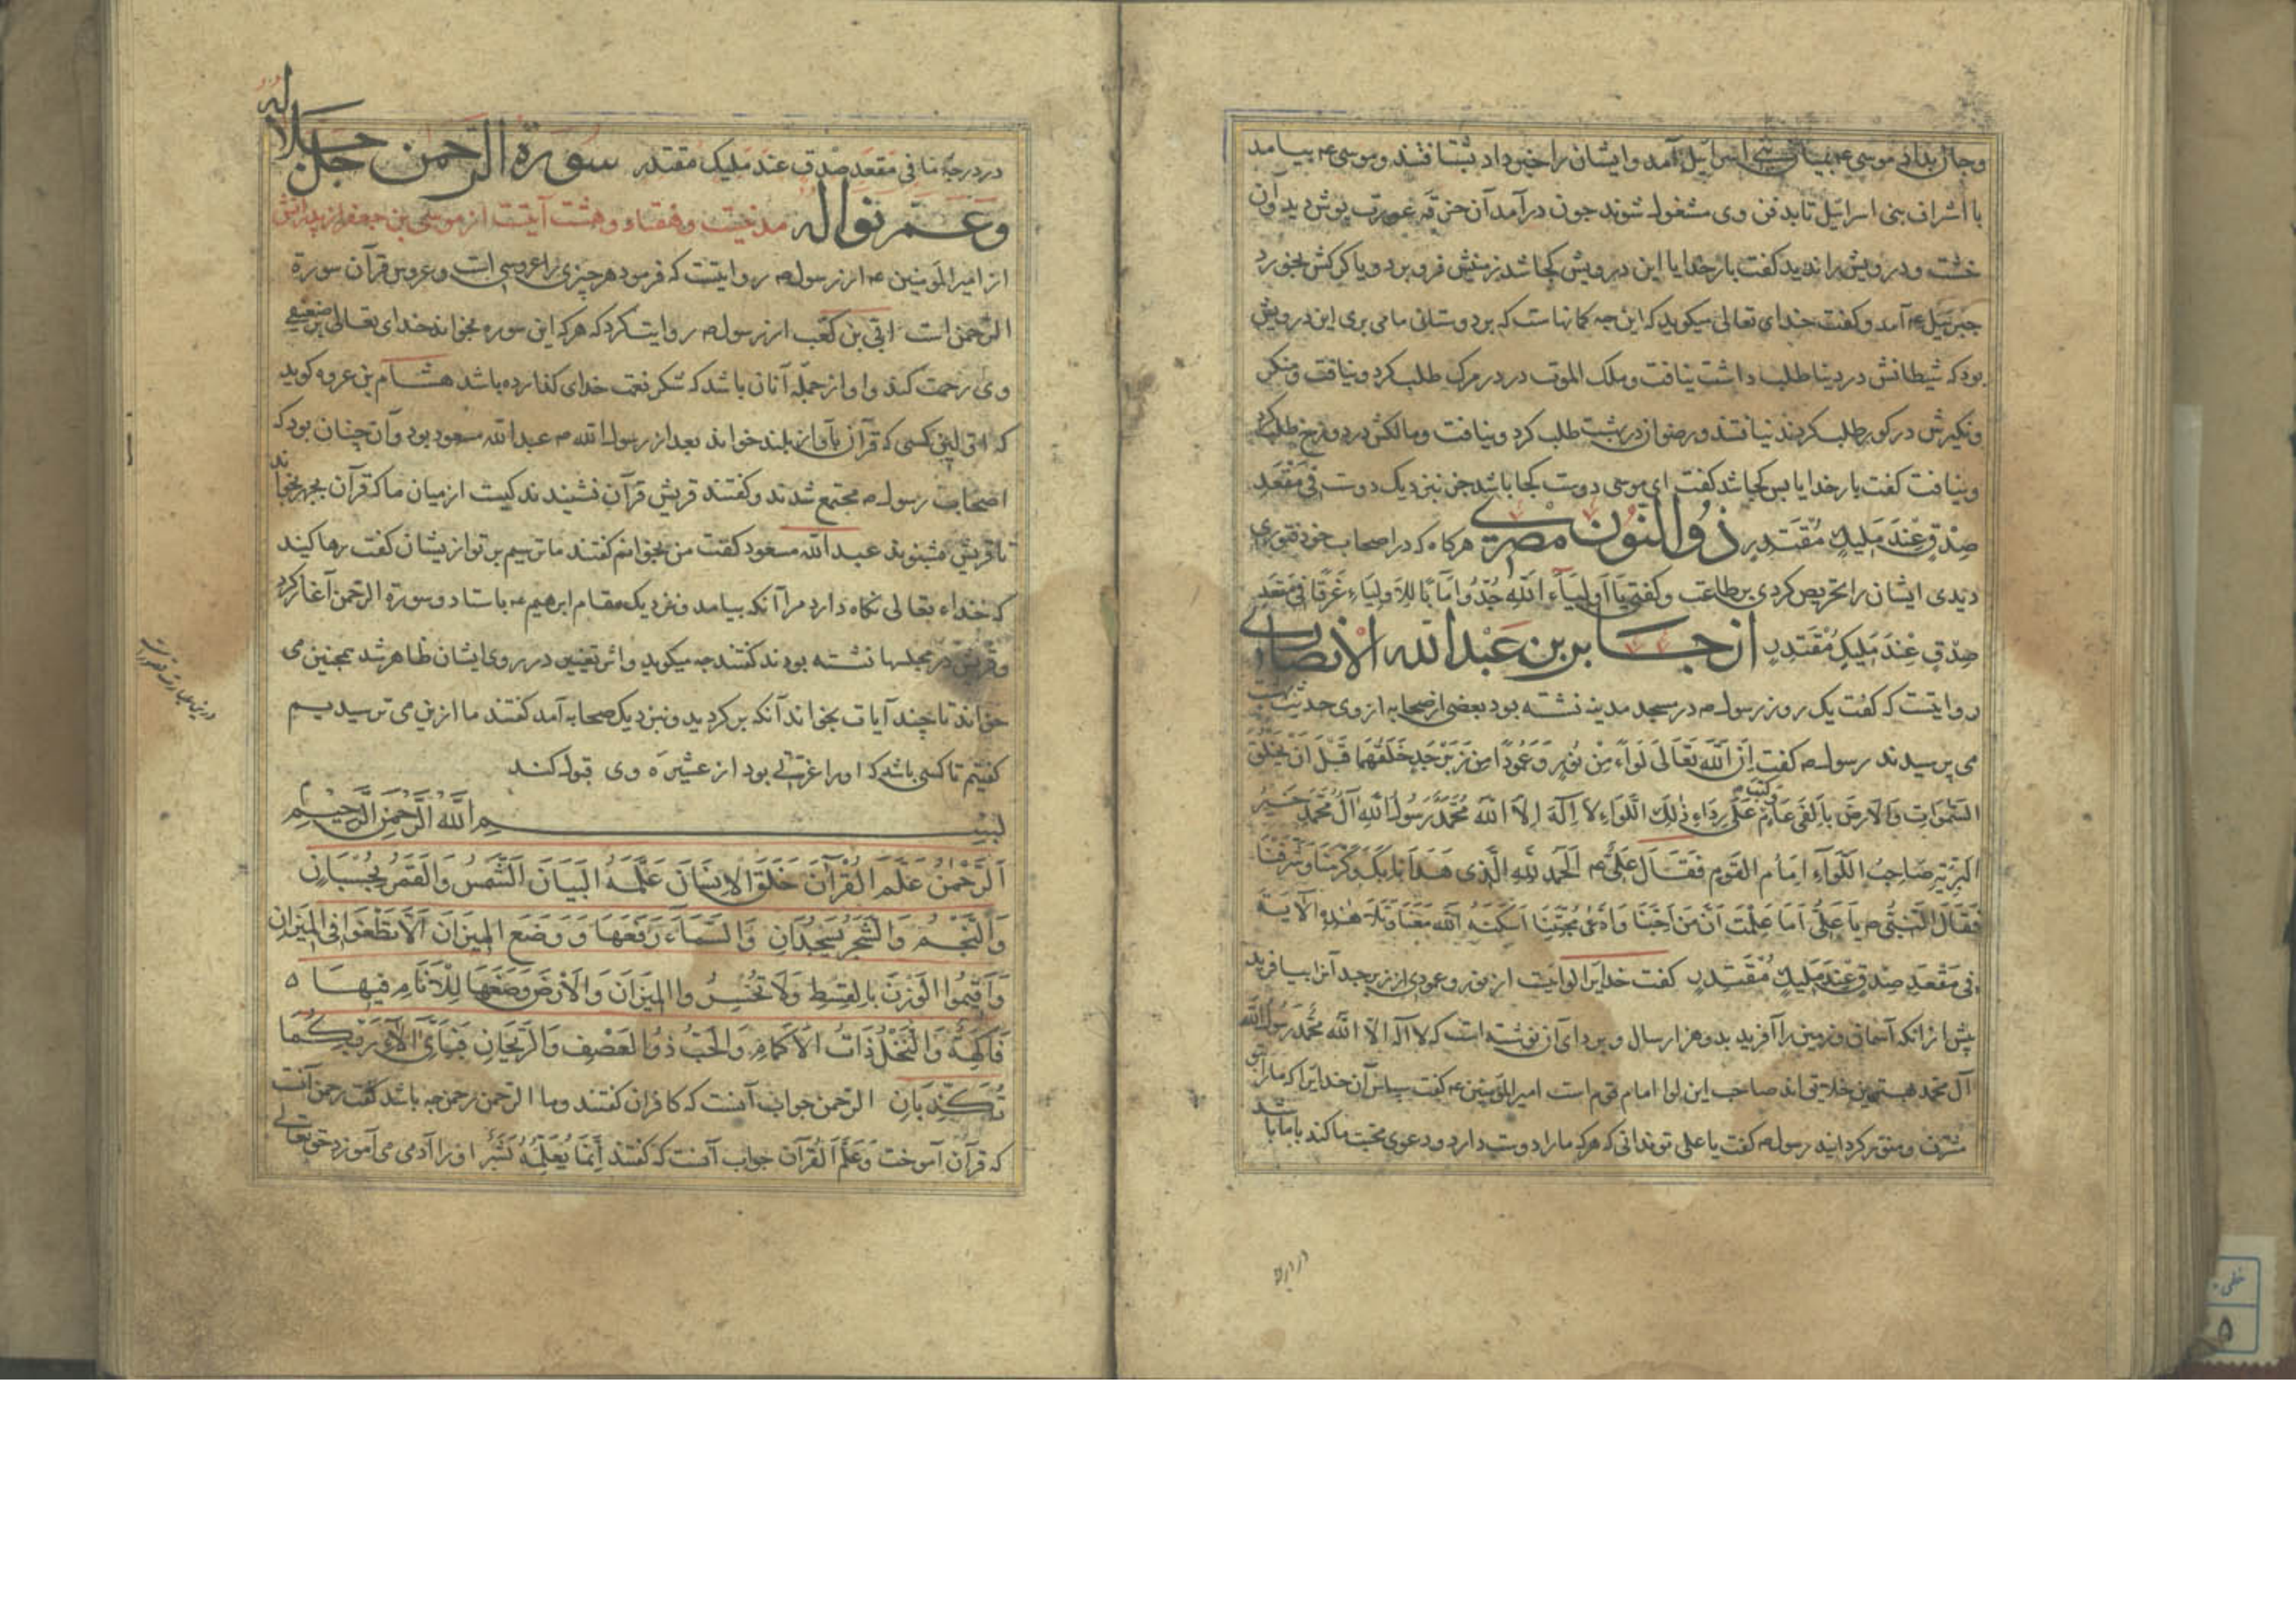 وجان بداد موسی ع بمیان بنی اسرائیل آمد وایشان را خبر داد بشتافتند و موسی ع بیامد
با اشراف بنی اسرائیل تا بدفن وی مشغول شوند چون درآمد آن خرقه عورت پوش دید وآن
خشت ودرویش را ندید کفت بارخدایا این درویش کجا شد زمینش فرو برد ویا کرکش بخورد
جبرئیل ع آمد وکفت خدای تعالی میکوید که این چه کمانهاست که بدوستان ما می بری این درویش
بود که شیطانش در دنیا طلب داشت نیافت وملک الموت در در مرک طلب کرد ونیافت ومنکر
ونکیرش در کور طلب کردند نیافتند ورضوان در بهشت طلب کرد ونیافت ومالکش در دوزخ طلب کرد
ونیافت کفت بارخدایا پس کجا شد کفت ای موسی دوست کجا باشد جز نزدیک دوست فی مقعد
صدق عند ملیک مقتدر ذوالنون مصری هرکاه که در اصحاب خود فتوری
دیدی ایشان را تحریص کردی بر طاعت وکفتی یا اولیاء الله جدوا اما للاولیاء غرفا فی مقعد
صدق عند ملیک مقتدر از جابر بن عبدالله الانصاری
روایتست که کفت یک روز رسول ص در مسجد مدینه نشسته بود بعضی از صحابه از وی حدیث بهشت
می پرسیدند رسول ص کفت ان الله تعالی لواء من نور وعمودا من زبرجد خلقهما قبل ان یخلق
السموات والارض بالفی عام وکتب علی رداء ذلک اللواء لا اله الا الله محمد رسول الله آل محمد خیر
البریة صاحب اللواء امام القوم فقال علی ع الحمد لله الذی هدانا بک وکرمنا وشرفنا
فقال النبی ص یا علی اما علمت ان من احبنا وادعی محبتنا اسکنه الله معنا وتلا هذه الآیة
فی مقعد صدق عند ملیک مقتدر کفت خدایرا لوائیست از نور وعمودی از زبرجد آنرا بیافرید
پیش از آنکه آسمان وزمین را آفرید بدو هزار سال وبر ردای آن نوشته است که لا اله الا الله محمد رسول الله
آل محمد بهترین خلایق اند صاحب این لوا امام قوم است امیرالمومنین ع کفت سپاس آن خدایرا که ما را بتو
مشرف ومنور کردانید رسول ص کفت یا علی تو ندانی که هرکه ما را دوست دارد ودعوی محبت ما کند با ما باشد
در درجه ما فی مقعد صدق عند ملیک مقتدر سورة الرحمن جل جلاله
وعم نواله مدنیست وهفتاد وهشت آیتست از موسی بن جعفر از پدرانش
از امیر المومنین ع از رسول ص روایتست که فرمود هر چیزی را عروسی است وعروس قرآن سورة
الرحمن است ابی بن کعب از رسول ص روایت کرد که هرکه این سوره بخواند خدای تعالی بر ضعیفی
وی رحمت کند واو از جمله آنان باشد که شکر نعمت خدای کذارده باشد هشام بن عروه کوید
که اول کسی که قرآن بآواز بلند خواند بعد از رسول الله ص عبدالله مسعود بود وآن چنان بود که
اصحاب رسول ص مجتمع شدند وکفتند قریش قرآن نشنیدند کیست از میان ما که قرآن بجهر بخواند
تا قریش بشنوند عبدالله مسعود کفت من بخوانم کفتند ما ترسیم بر تو از یشان کفت رها کنید
که خداء تعالی نکاه دارد مرا آنکه بیامد ونزدیک مقام ابرهیم ع باستاد وسورة الرحمن آغاز کرد
وقریش در مجلسها نشسته بودند کفتند چه میکوید واثر تغییر در روی ایشان ظاهر شد همچنین می
خواند تا چند آیات بخواند آنکه برکردید ونزدیک صحابه آمد کفتند ما ازین می ترسیدیم
کفتیم تا کسی باشد که او را عزتی بود از عشیره وی قبول کند
بسم الله الرحمن الرحیم
الرحمن علم القرآن خلق الانسان علمه البیان الشمس والقمر بحسبان
والنجم والشجر یسجدان والسماء رفعها ووضع المیزان الا تطغوا فی المیزان
واقیموا الوزن بالقسط ولا تخسروا المیزان والارض وضعها للانام فیها ٥
فاکهة والنخل ذات الاکمام والحب ذو العصف والریحان فبای الآء ربکما
تکذبان الرحمن جواب آنست که کافران کفتند وما الرحمن رحمن چه باشد کفت رحمن آنست
که قرآن آموخت وعلم القرآن جواب آنست که کفتند انما یعلمه بشر او را آدمی می آموزد حق تعالی
در درجه
خطی
۵